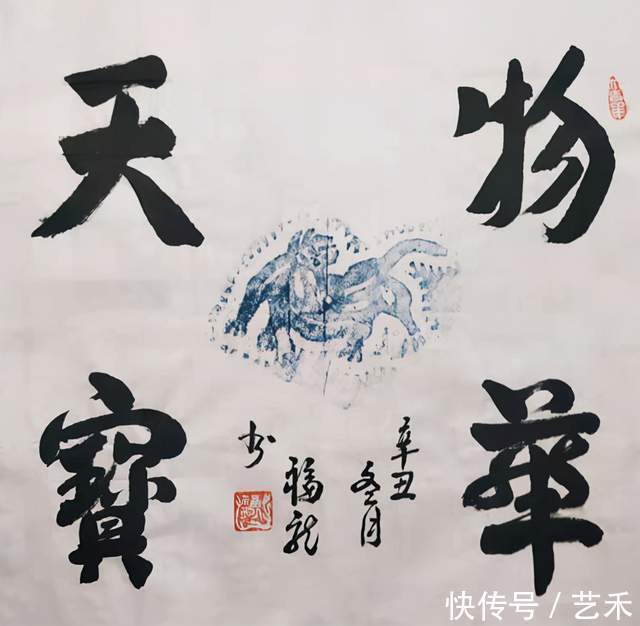 物華
天寶
辛丑
冬月
福龙
书
快传号/艺禾